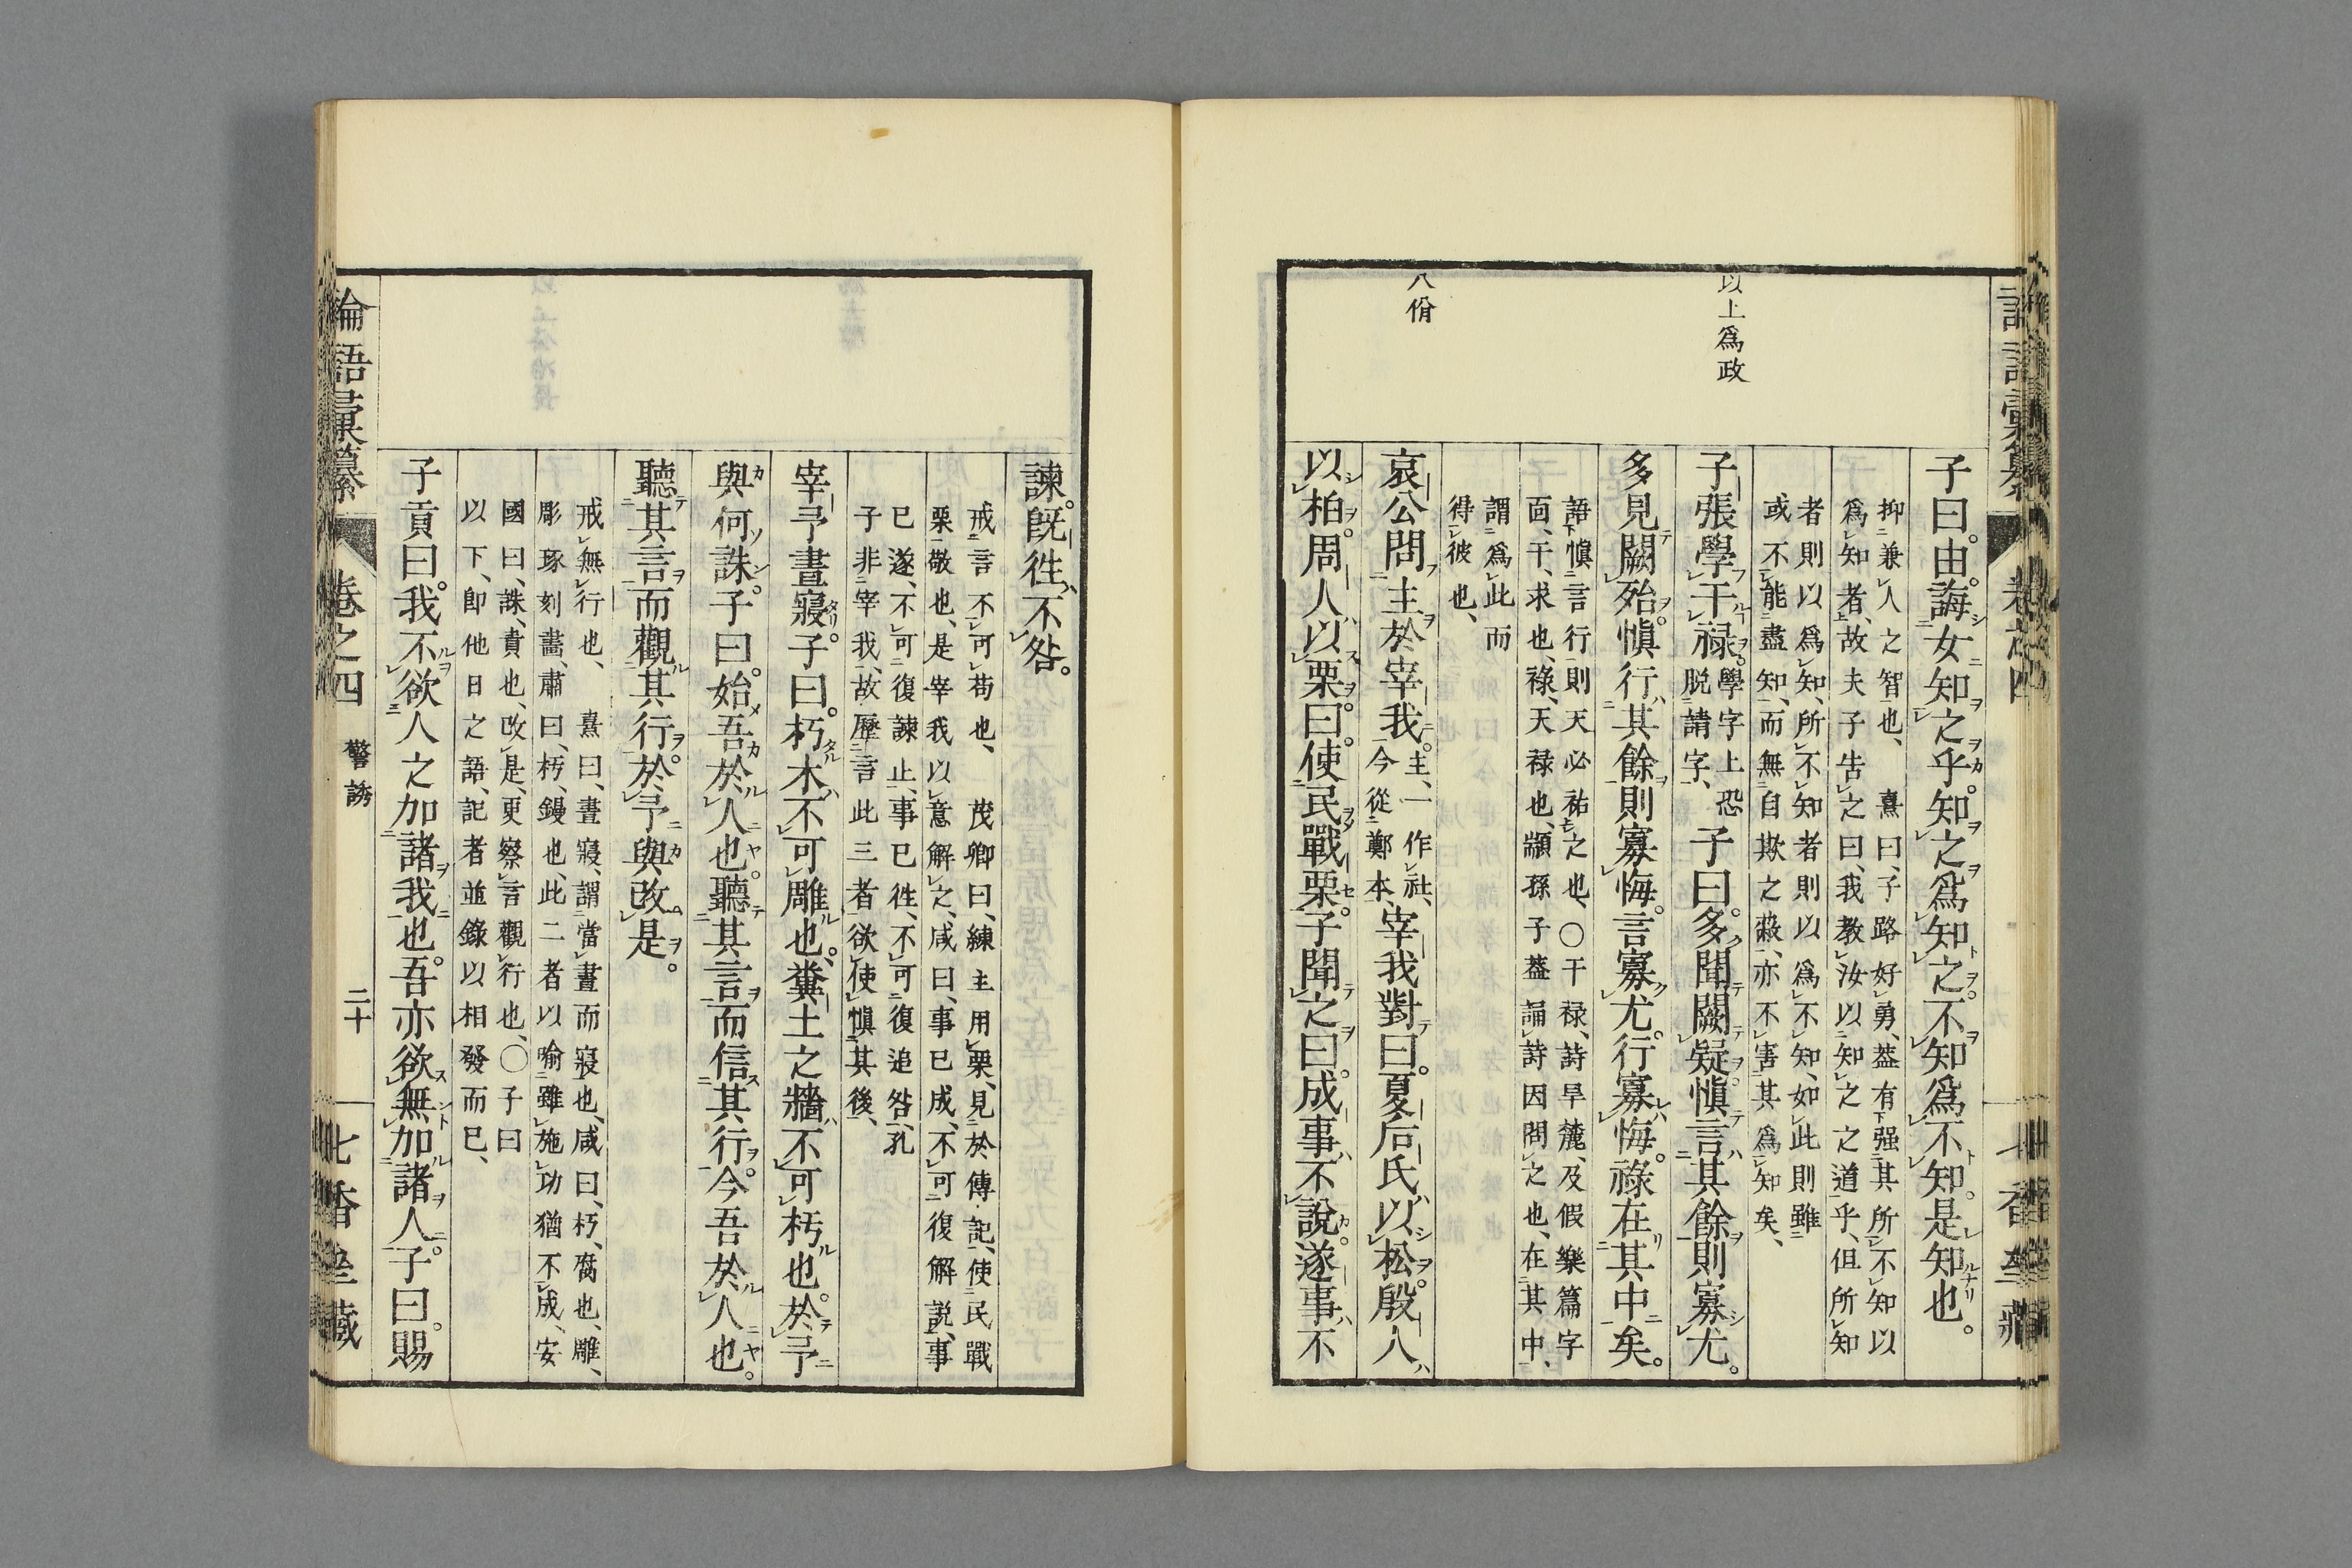 以上爲政
八佾
子曰。由。誨女知之乎。知之爲知之。不知爲不知。是知也。
抑兼人之智也、熹曰、子路好勇、葢有强其所不知以
爲知者、故夫子告之曰、我教汝以知之之道乎、但所知
者則以爲知、所不知者則以爲不知、如此則雖
或不能盡知、而無自欺之蔽、亦不害其爲知矣、
子張學干祿。學字上恐脱請字、子曰。多聞闕疑。愼言其餘則寡尤。
多見闕殆。愼行其餘則寡悔。言寡尤。行寡悔。祿在其中矣。
語愼言行則天必祐之也、〇干祿、詩旱麓、及假樂篇字
面、干、求也、祿、天祿也、顓孫子葢誦詩因問之也、在其中、
謂爲此而
得彼也、
哀公問主於宰我。主、一作社、今從鄭本、宰我對曰。夏后氏以松。殷人
以柏。周人以栗。曰。使民戰栗。子聞之曰。成事不說。遂事不
諫。旣徃不咎。
戒言不可苟也、茂卿曰、練主用栗、見於傳記、使民戰
栗敬也、是宰我以意解之、咸曰、事已成、不可復解説、事
已遂、不可復諫止、事已徃、不可復追咎、孔
子非宰我、故歷言此三者欲使愼其後、
宰予晝寢。子曰。朽木不可雕也。糞土之牆不可杇也。於予
與何誅。子曰。始吾於人也。聽其言而信其行。今吾於人也。
聽其言而觀其行。於予與改是。
戒無行也、熹曰、晝寢、謂當晝而寢也、咸曰、朽、腐也、雕、
彫琢刻畵、肅曰、杇、鏝也、此二者以喻雖施功猶不成、安
國曰、誅、責也、改是、更察言觀行也、〇子曰
以下、卽他日之語、記者並錄以相發而已、
子貢曰。我不欲人之加諸我也。吾亦欲無加諸人。子曰。賜
論語彙纂 卷之四 警誘 二十 七香堂藏